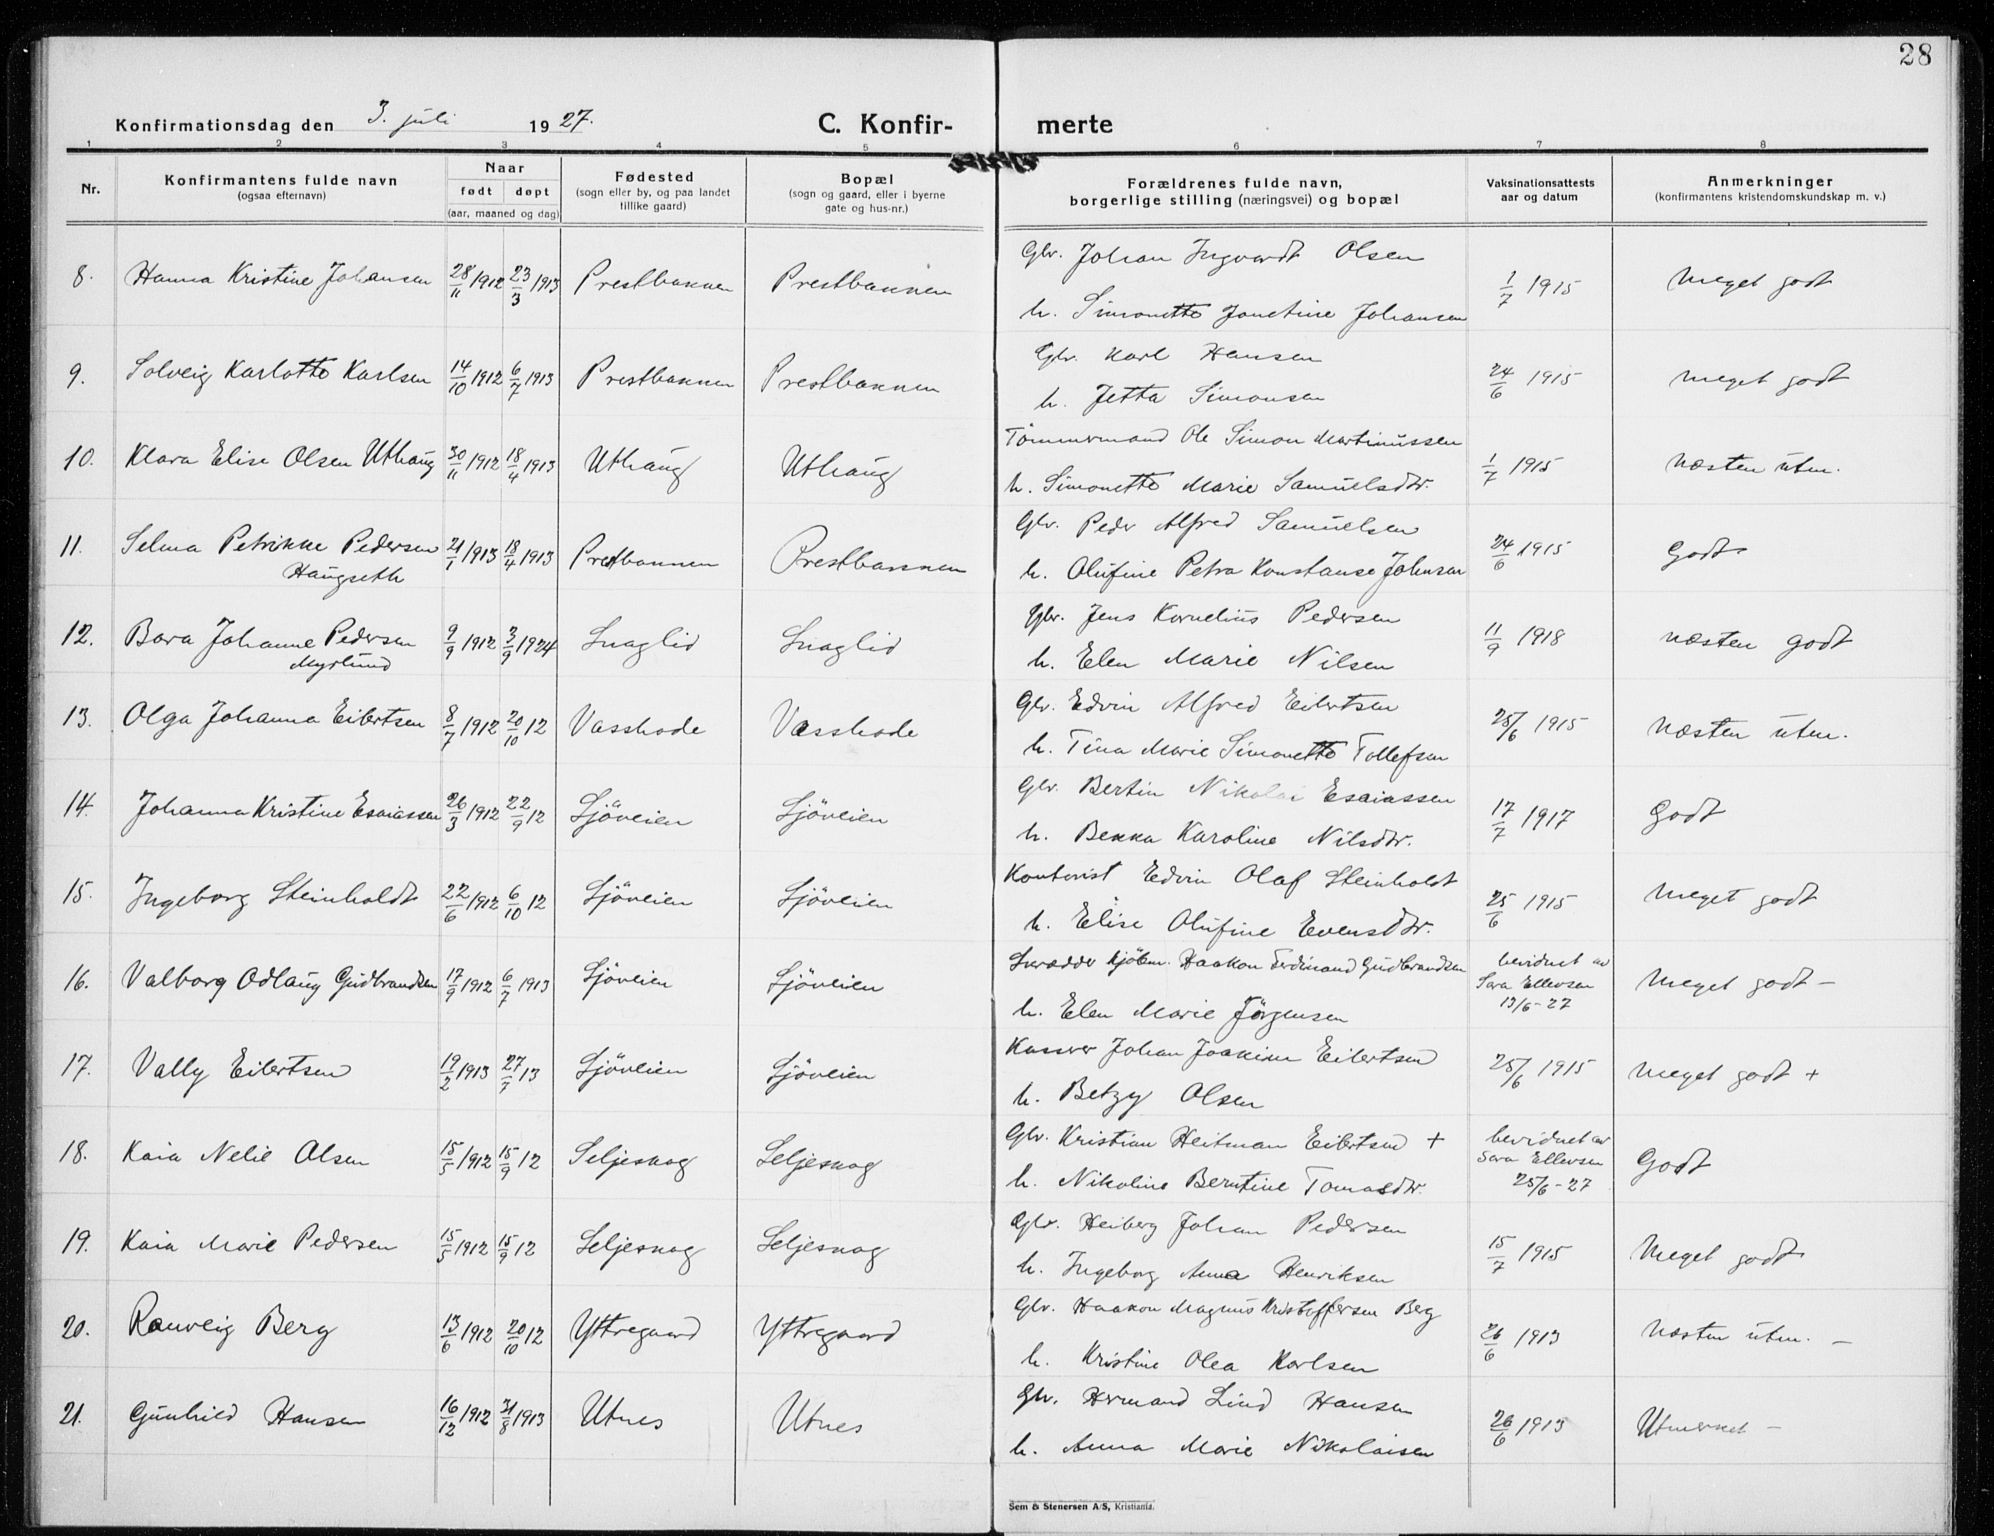 28
Konfirmationsdag den 3. juli 1927.
C. Konfir-merte
1 2 3 4 5 6 7 8
Nr.
Konfirmantens fulde navn
(ogsaa efternavn)
Naar
født døpt
(aar, maaned og dag)
Fødested
(sogn eller by, og paa landet
tillike gaard)
Bopæl
(sogn og gaard, eller i byerne
gate og hus-nr.)
Forældrenes fulde navn,
borgerlige stilling (næringsvei) og bopæl
Vaksinationsattests
aar og datum
Anmerkninger
(konfirmantens kristendomskundskap m. v.)
8. Hanna Kristine Johansen 28/11 1912 23/3 1913 Prestbakken Prestbakken Gbr. Johan Ingvardt Olsen 1/7 1915 Meget godt
h. Simonette Jonetine Johansen
9. Solveig Karlotte Karlsen 14/10 1912 6/7 1913 Prestbakken Prestbakken Gbr. Karl Hansen 24/6 1915 Meget godt
h. Jetta Simonsen
10. Klara Elise Olsen Uthaug 30/11 1912 18/4 1913 Uthaug Uthaug Tømmermand Ole Simon Martinussen 1/7 1915 Næsten utm.
h. Simonette Marie Samuelsdtr.
11. Selma Petrikke Pedersen 21/1 1913 18/4 1913 Prestbakken Prestbakken Gbr. Peder Alfred Samuelsen 24/6 1915 Godt
Haugseth h. Olufine Petra Konstanse Johnsen
12. Bara Johanne Pedersen 9/9 1912 3/9 1924 Snaglid Snaglid Gbr. Jens Kornelius Pedersen 11/9 1918 Næsten godt
Myrlund h. Elen Marie Nilsen
13. Olga Johanna Eilertsen 8/7 1912 20/10 12 Vasshode Vasshode Gbr. Edvin Alfred Eilertsen 25/6 1915 Næsten utm.
h. Tina Marie Simonette Tollefsen
14. Johanna Kristine Esaiassen 26/3 1912 22/9 12 Sjöveien Sjöveien Gbr. Bertin Nikolai Esaiassen 17/7 1917 Godt
h. Bekka Karoline Nilsdtr.
15. Ingeborg Steinholdt 22/6 1912 6/10 12 Sjöveien Sjöveien Kontorist Edvin Olaf Steinholdt 25/6 1915 Meget godt
h. Elise Olufine Evensdtr.
16. Valborg Odlaug Gudbrandsen 17/9 1912 6/7 1913 Sjöveien Sjöveien Skrædder kjöbm. Haakon Ferdinand Gudbrandsen bevidnet av Sara Ellevsen 13/6-27 Meget godt –
h. Elen Marie Jörgensen
17. Vally Eilertsen 19/2 1913 27/7 13 Sjöveien Sjöveien Kasser Johan Joakim Eilertsen 25/6 1915 Meget godt +
h. Betzy Olsen
18. Kaia Nelie Olsen 15/5 1912 15/9 12 Seljeskog Seljeskog Gbr. Kristian Heitman Eilertsen + bevidnet av Sara Ellevsen 25/6-27 Godt
h. Nikoline Berntine Tomasdtr.
19. Kaia Marie Pedersen 15/5 1912 15/9 12 Seljeskog Seljeskog Gbr. Heiberg Johan Pedersen 15/7 1915 Meget godt
h. Ingeborg Anna Henriksen
20. Ranveig Berg 13/6 1912 20/10 12 Yttregaard Yttregaard Gbr. Haakon Magnus Kristoffersen Berg 26/6 1913 Næsten utm. –
h. Kristine Olea Karlsen
21. Gunhild Hansen 16/12 1912 31/8 1913 Utnes Utnes Gbr. Hermand Lind Hansen 26/6 1913 Utmerket –
h. Anna Marie Nikolaisen
Sem & Stenersen A/S, Kristiania.